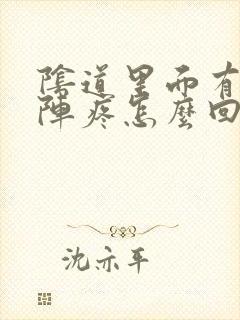 陰道里面有
陣疼怎麼回
沈亦平